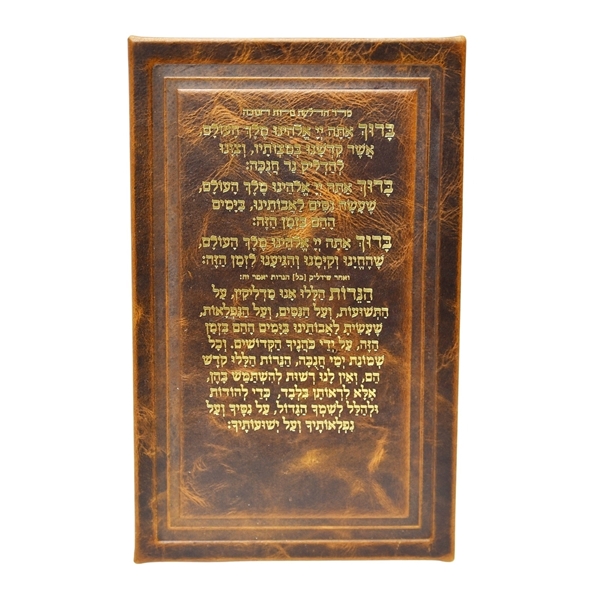 סדר הדלקת נרות חנוכה
בָּרוּךְ אַתָּה יְיָ אֱלֹהֵינוּ מֶלֶךְ הָעוֹלָם,
אֲשֶׁר קִדְּשָׁנוּ בְּמִצְוֹתָיו, וְצִוָּנוּ
לְהַדְלִיק נֵר חֲנֻכָּה:
בָּרוּךְ אַתָּה יְיָ אֱלֹהֵינוּ מֶלֶךְ הָעוֹלָם,
שֶׁעָשָׂה נִסִּים לַאֲבוֹתֵינוּ, בַּיָּמִים
הָהֵם בַּזְּמַן הַזֶּה:
בָּרוּךְ אַתָּה יְיָ אֱלֹהֵינוּ מֶלֶךְ הָעוֹלָם,
שֶׁהֶחֱיָנוּ וְקִיְּמָנוּ וְהִגִּיעָנוּ לַזְּמַן הַזֶּה:
ואחר שידליק [כל] הנרות יאמר זה:
הַנֵּרוֹת הַלָּלוּ אָנוּ מַדְלִיקִין, עַל
הַתְּשׁוּעוֹת, וְעַל הַנִּסִּים, וְעַל הַנִּפְלָאוֹת,
שֶׁעָשִׂיתָ לַאֲבוֹתֵינוּ בַּיָּמִים הָהֵם בַּזְּמַן
הַזֶּה, עַל יְדֵי כֹּהֲנֶיךָ הַקְּדוֹשִׁים. וְכָל
שְׁמוֹנַת יְמֵי חֲנֻכָּה, הַנֵּרוֹת הַלָּלוּ קֹדֶשׁ
הֵם, וְאֵין לָנוּ רְשׁוּת לְהִשְׁתַּמֵּשׁ בָּהֶן,
אֶלָּא לִרְאוֹתָן בִּלְבָד, כְּדֵי לְהוֹדוֹת
וּלְהַלֵּל לְשִׁמְךָ הַגָּדוֹל, עַל נִסֶּיךָ וְעַל
נִפְלְאוֹתֶיךָ וְעַל יְשׁוּעוֹתֶיךָ: